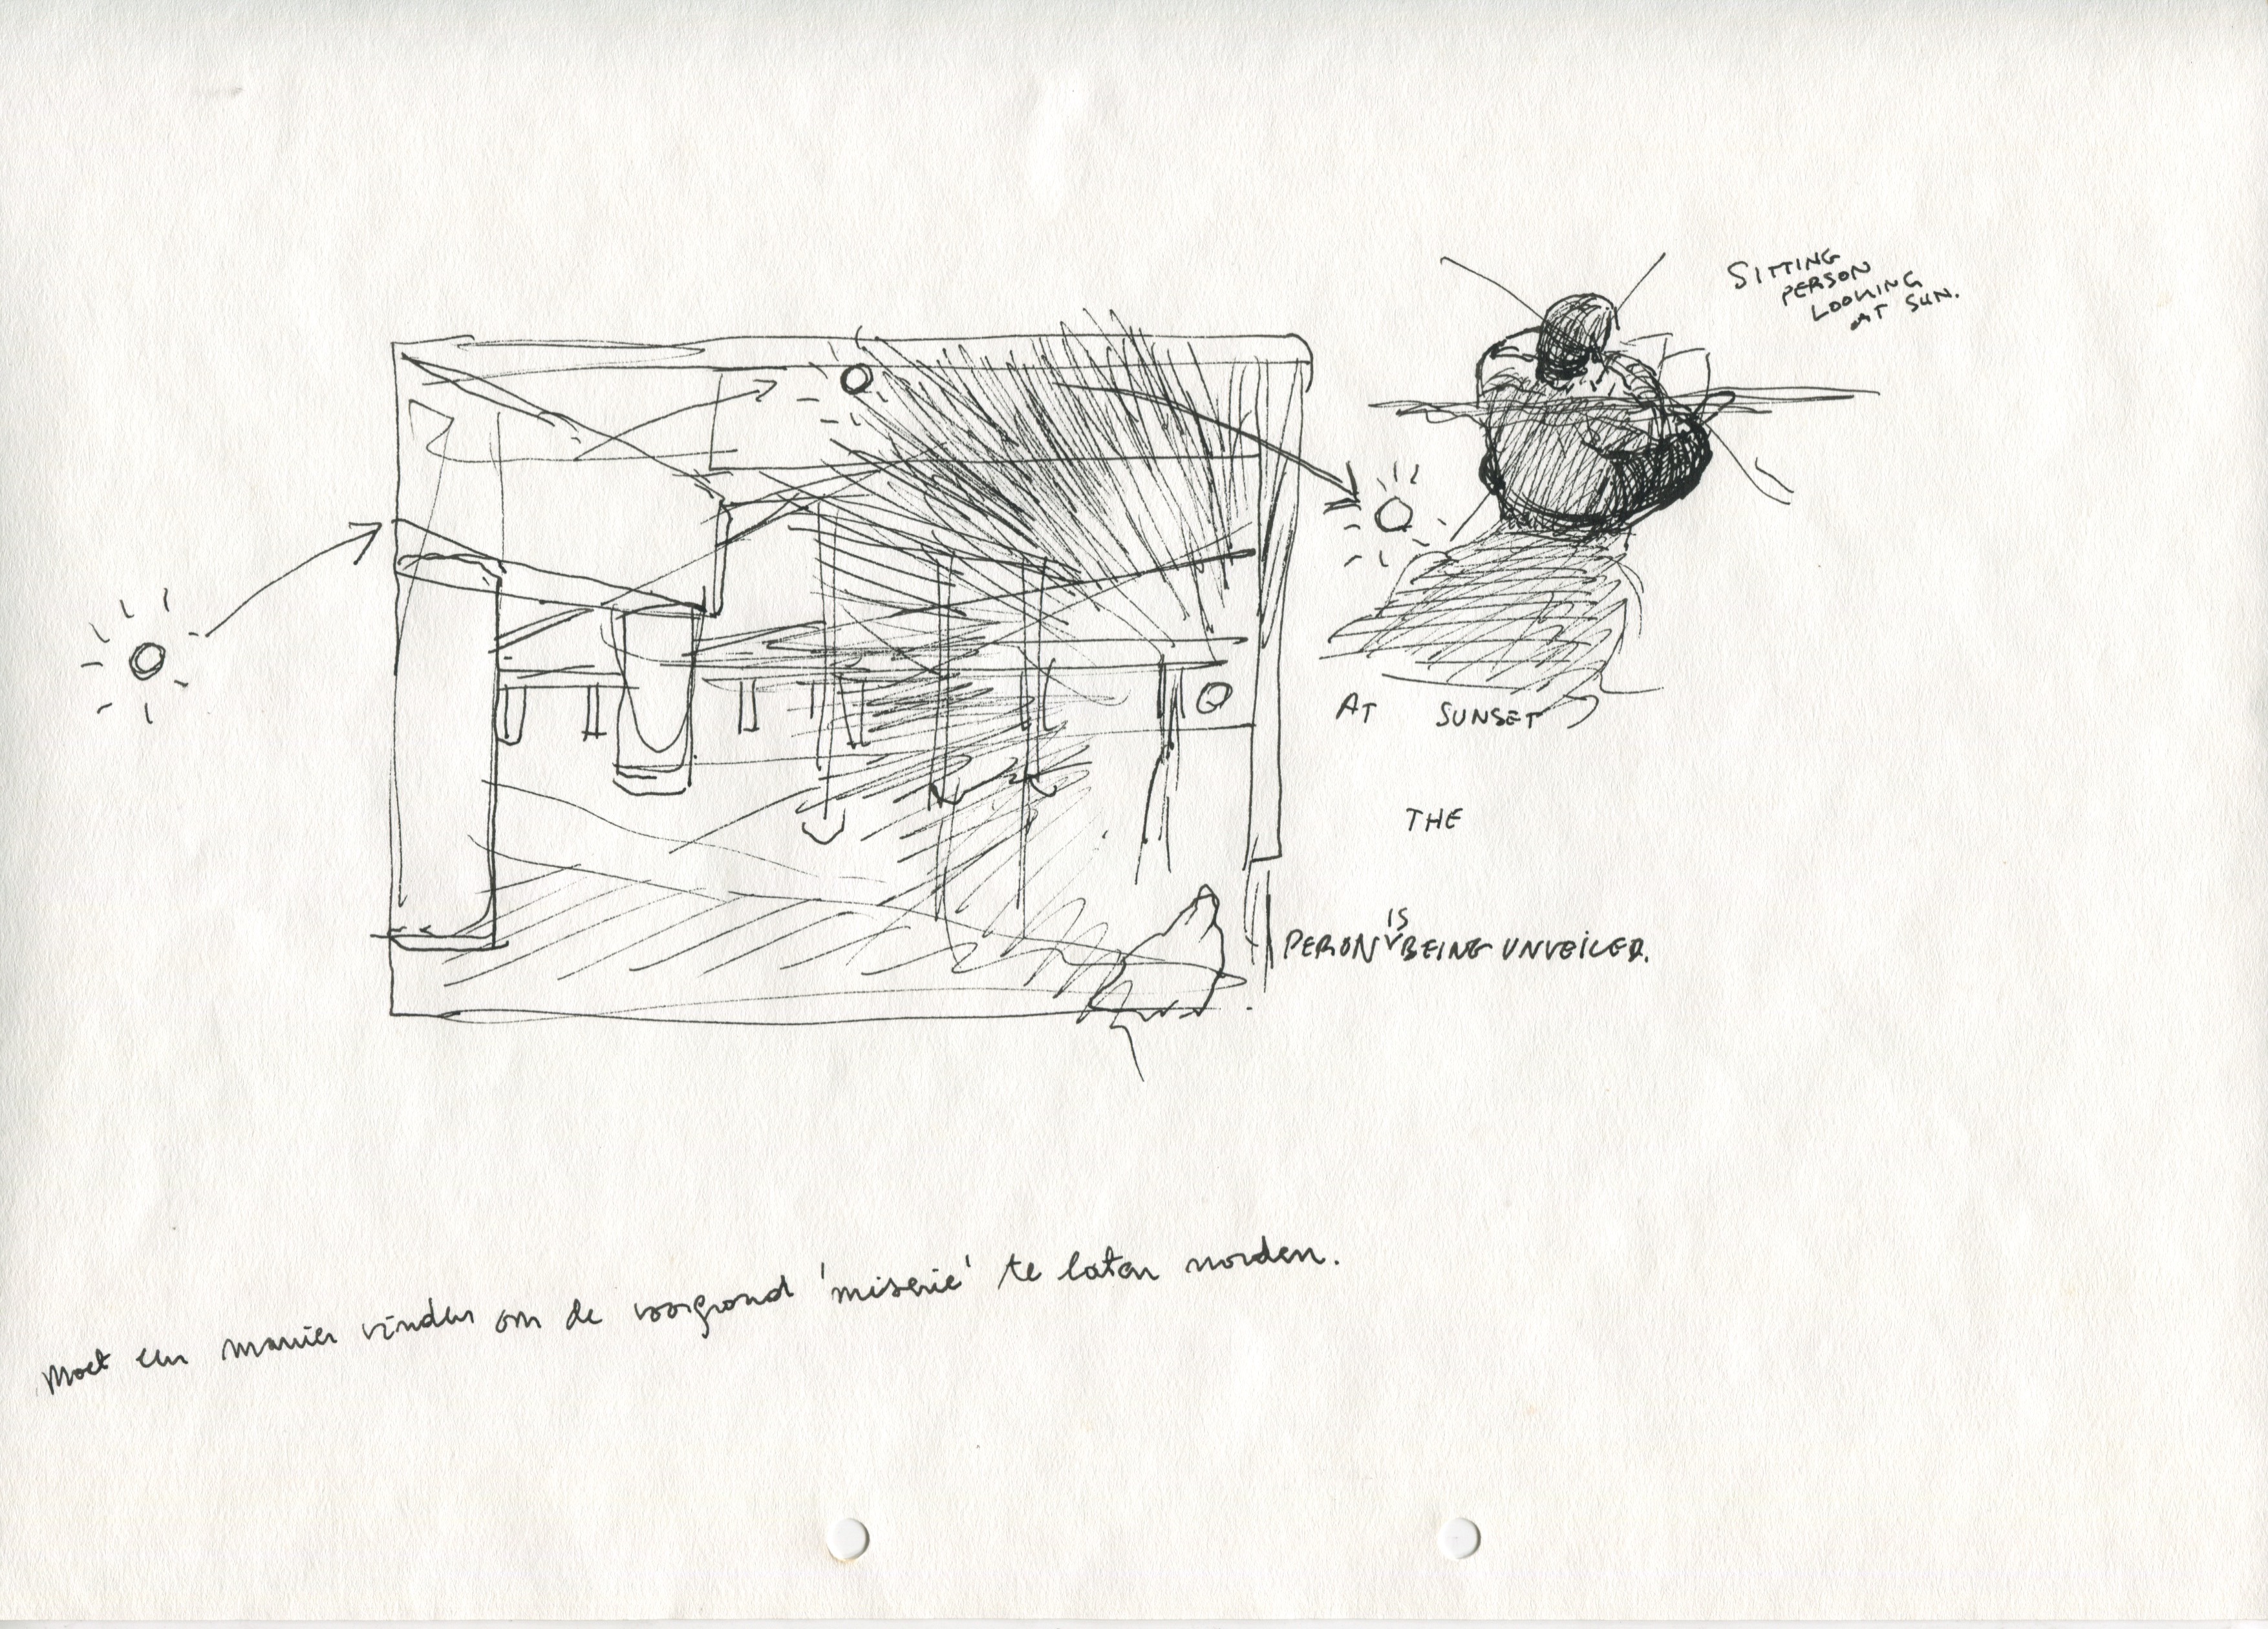 SITTING
PERSON
LOOKING
AT SUN.
AT SUNSET
THE
IS
PERSON BEING UNVEILED.
Moet een manier vinden om de voorgrond 'miserie' te laten worden.